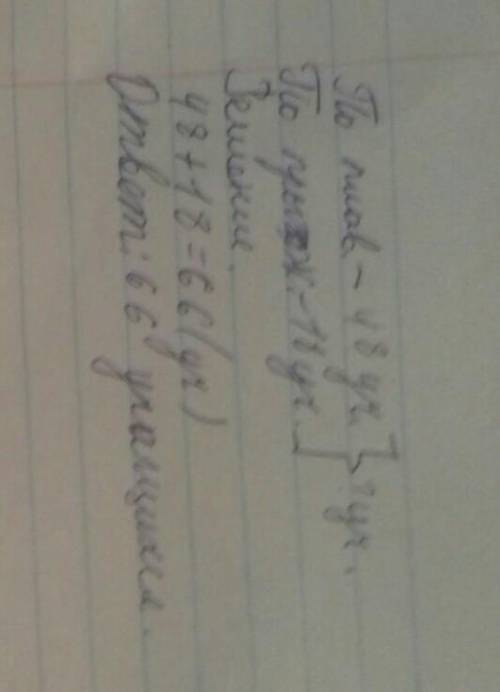 По плав. - 48 уч. } ? уч.
По прыж. - 18 уч.
Решение.
48+18=66 (уч.)
Ответ: 66 учащихся.